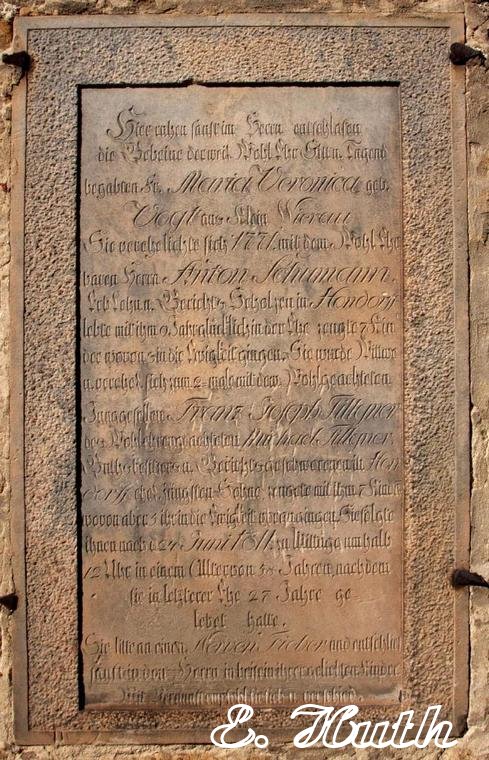 Hier ruhen sanft im Herrn entschlafen
die Gebeine der weil. Wohl Ehr Sitt u. Tugend
begabten Fr. Maria Veronica geb.
Vogt aus Klein Wierau
Sie verehelichte sich 1771 mit dem Wohl Ehr
baren Herrn Anton Schumann,
Erb Lehn u. Gerichts Scholzen in
lebte mit ihm 9 Jahr glücklich in der Ehe zeugte 7 Kin
der wovon in die Ewigkeit gingen. Sie wurde Wittwe
u. verehel. sich zum 2 male mit dem Wohlgeachteten
Junggesellen Franz Joseph
des Wohlehrengeachteten Michael
Guthsbesitzers u. Gerichts geschworenen in
ehel. Jüngsten Sohne zeugete mit ihm 7 Kinder
wovon aber 5 ihr in die Ewigkeit vorangingen. Sie folgte
ihnen nach d. 24 Juni 1811 zu Mittage um halb
12 Uhr in einem Alter von 58 Jahren, nach dem
sie in letzterer Ehe 27 Jahre ge-
lebet hatte.
Sie litte an einem Nerven Fieber und entschlief
sanft in dem Herrn in ihrer geliebten Kinder
E. Huth